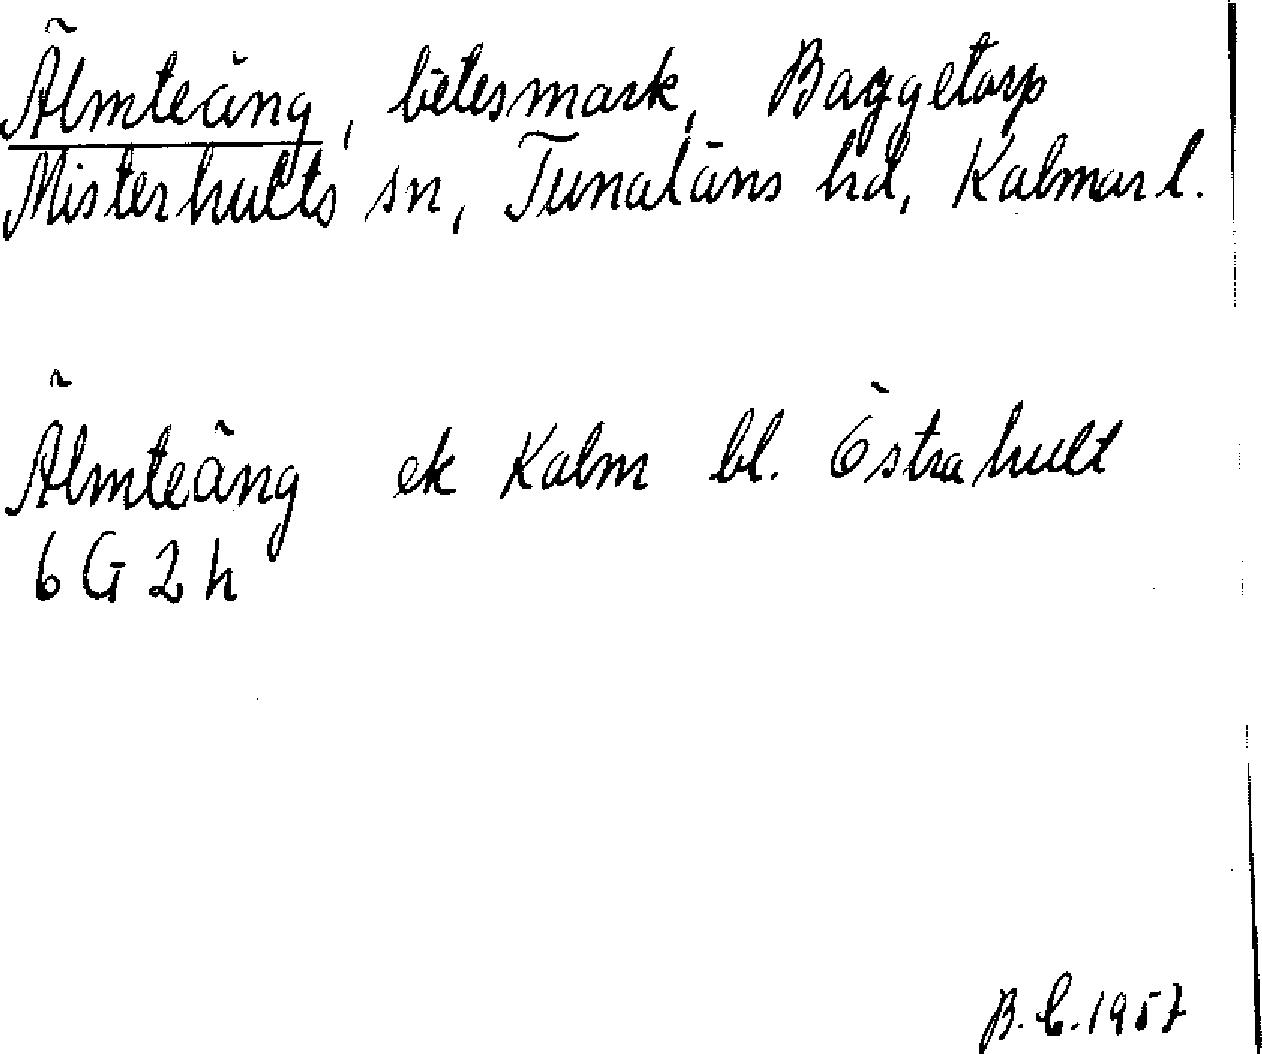 Älmteäng, betesmark, Baggetorp
Misterhults sn, Tunaläns hd, Kalmar l.
Älmteäng ek Kalm bl. Östrahult
6 G 2 h
B. C. 1957